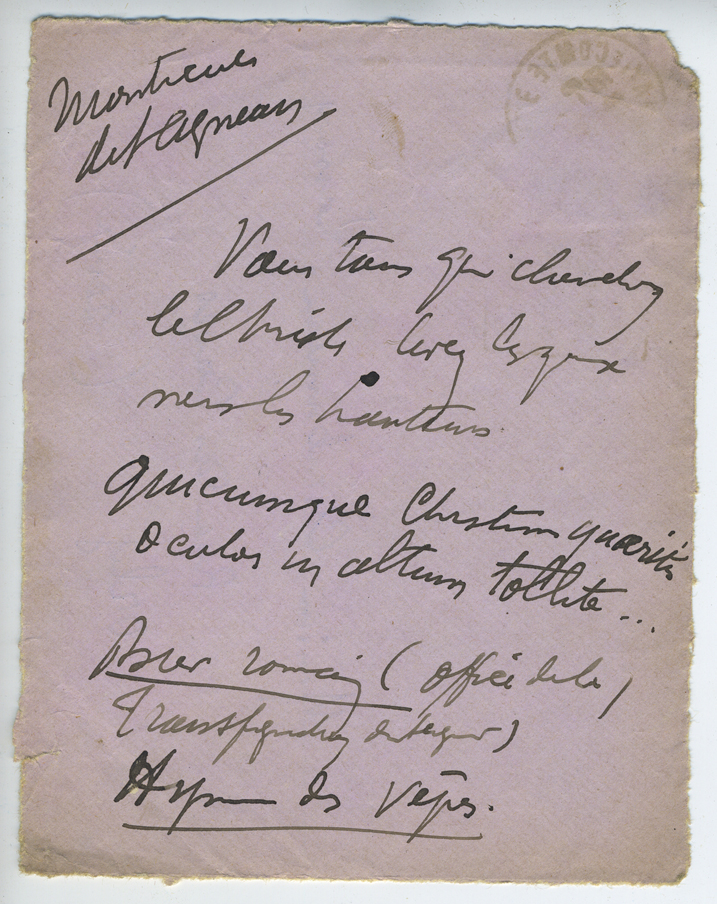 Monsieur
des Agneaux
Vous tous qui cherchez
le Christ levez les yeux
vers les hauteurs
Quicumque Christum quaeritis
oculos in altum tollite...
romain (office de la
Transfiguration
Hymne des Vêpres.